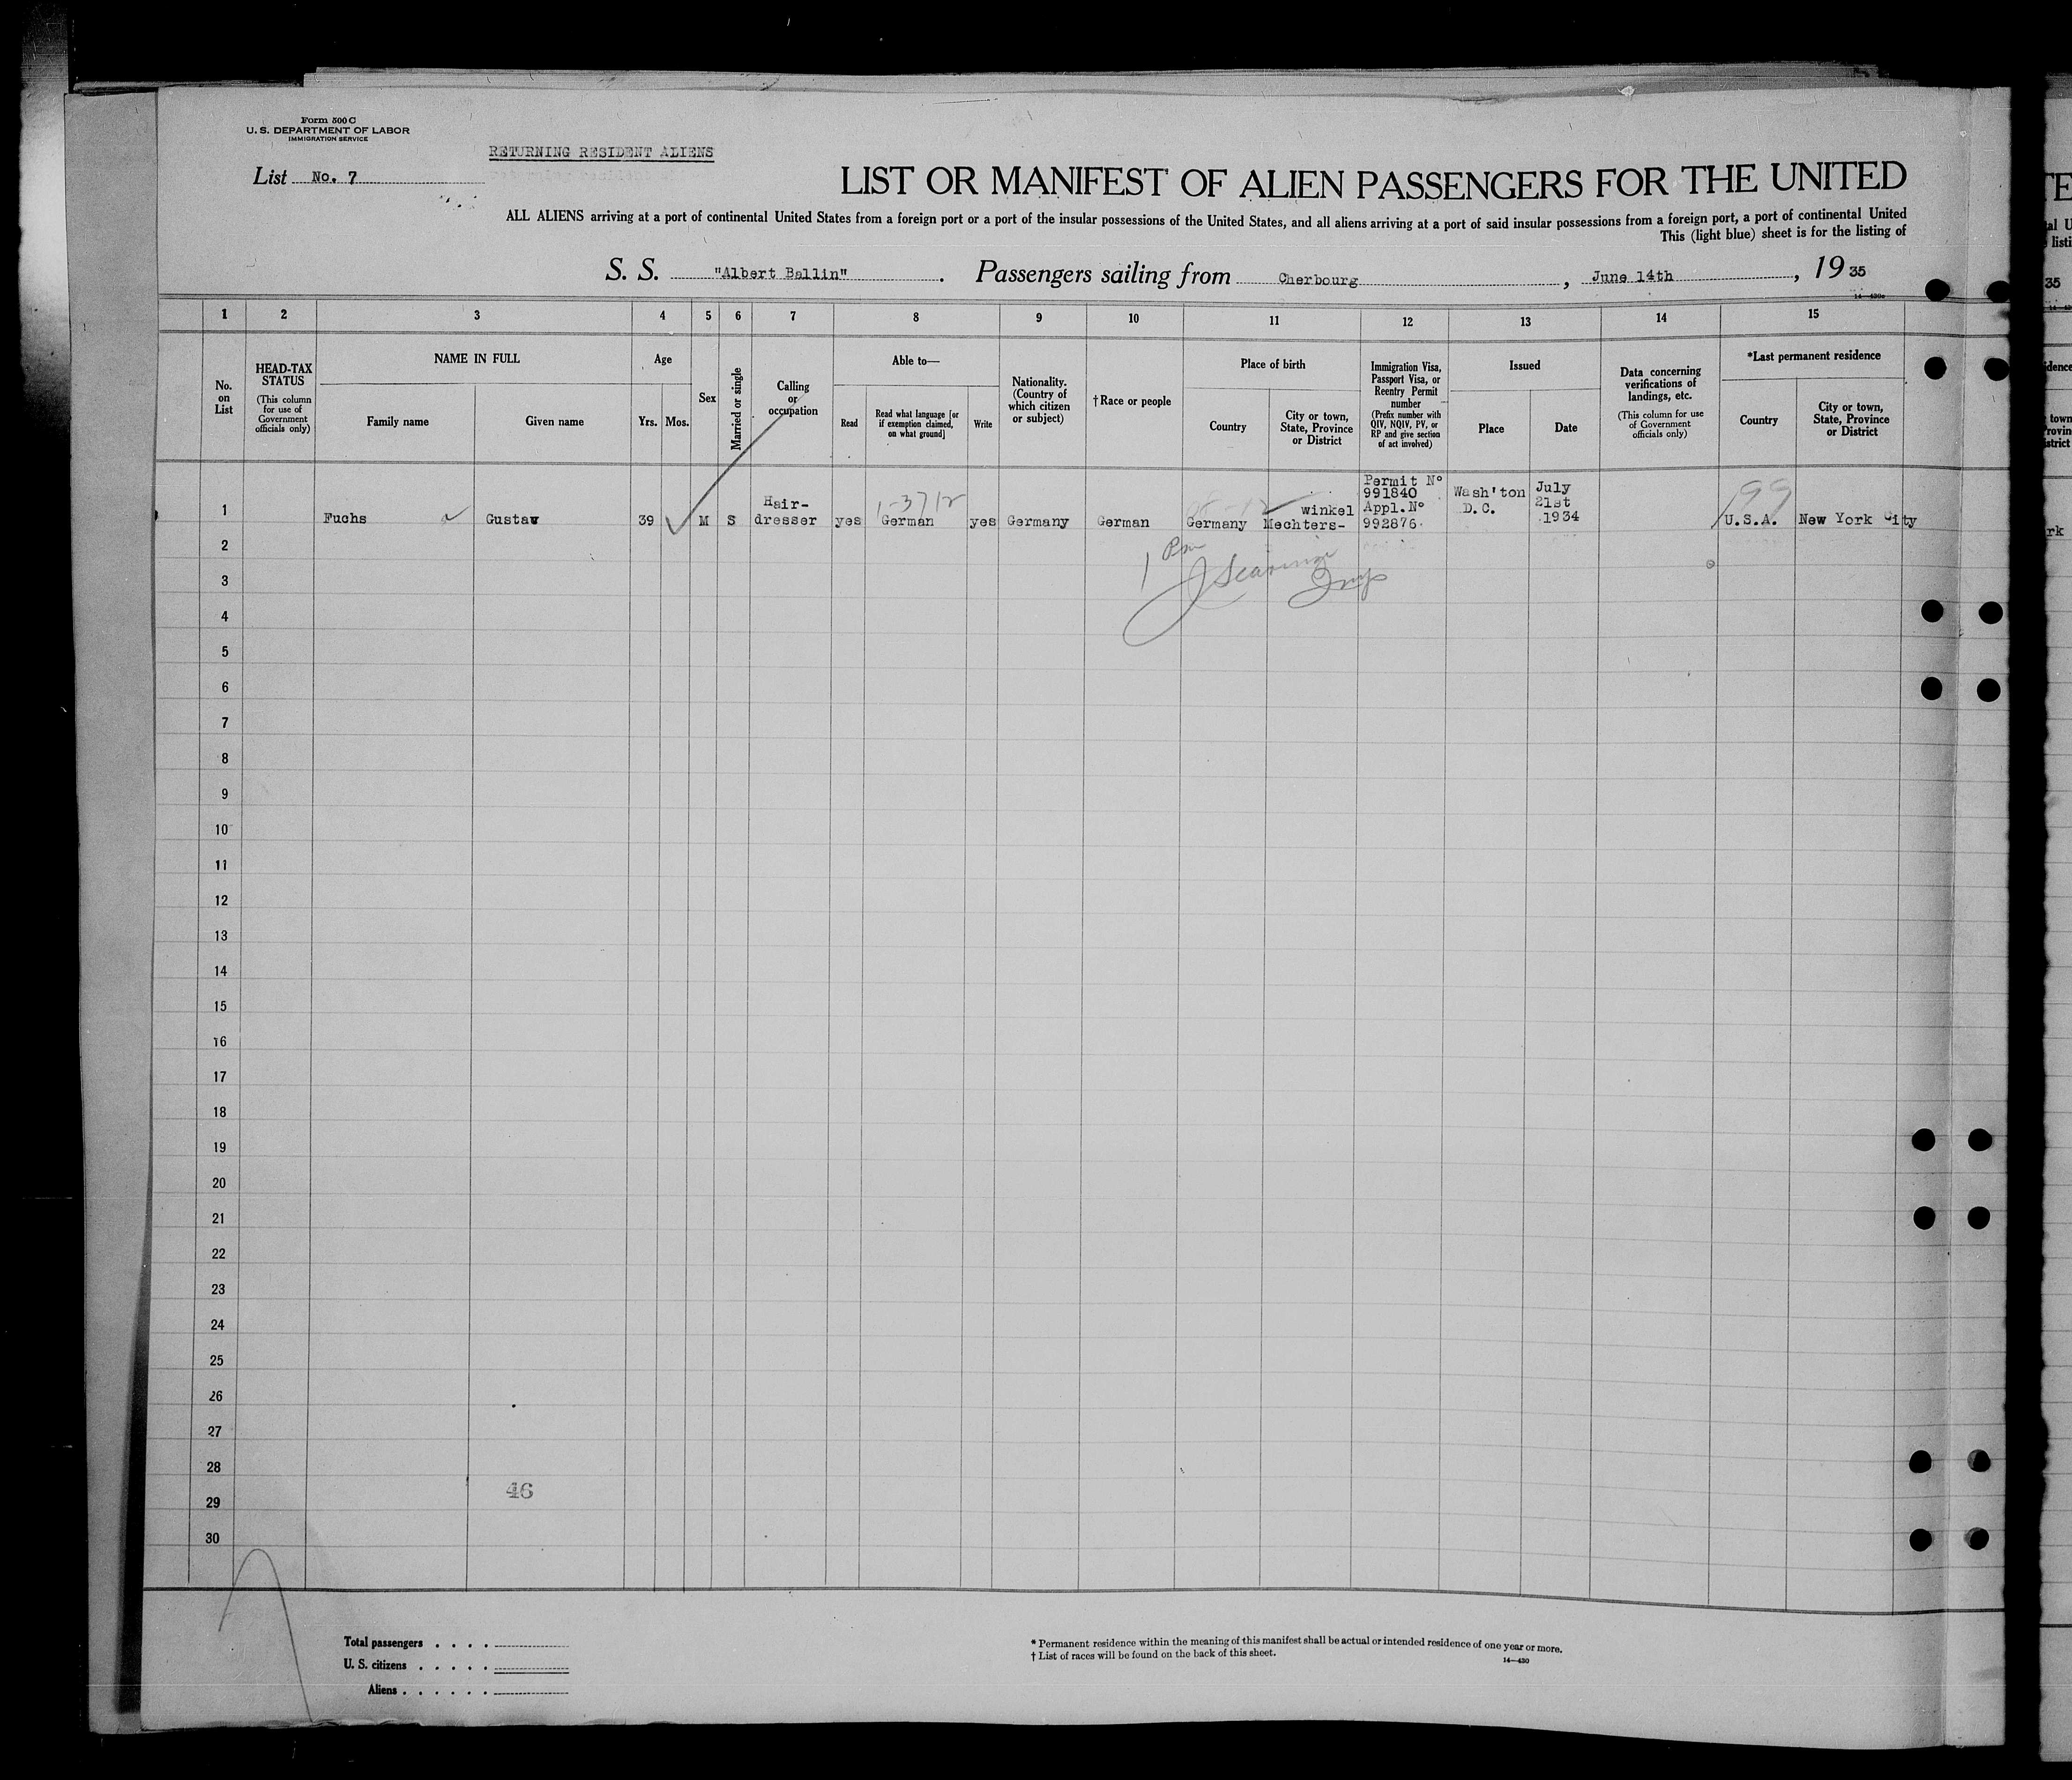 Form 500 C
U. S. DEPARTMENT OF LABOR
IMMIGRATION SERVICE
RETURNING RESIDENT ALIENS
List No. 7
LIST OR MANIFEST OF ALIEN PASSENGERS FOR THE UNITED
ALL ALIENS arriving at a port of continental United States from a foreign port or a port of the insular possessions of the United States, and all aliens arriving at a port of said insular possessions from a foreign port, a port of continental United
This (light blue) sheet is for the listing of
S. S. "Albert Ballin". Passengers sailing from Cherbourg, June 14th, 19 35
1 2 3 4 5 6 7 8 9 10 11 12 13 14 15
No. on List
HEAD-TAX STATUS
(This column for use of Government officials only)
NAME IN FULL
Family name
Given name
Age
Yrs.
Mos.
Sex
Married or single
Calling or occupation
Able to—
Read
Read what language [or if exemption claimed, on what ground]
Write
Nationality. (Country of which citizen or subject)
†Race or people
Place of birth
Country
City or town, State, Province or District
Immigration Visa, Passport Visa, or Reentry Permit number
(Prefix number with QIV, NQIV, PV, or RP and give section of act involved)
Issued
Place
Date
Data concerning verifications of landings, etc.
(This column for use of Government officials only)
*Last permanent residence
Country
City or town, State, Province or District
1 Fuchs Gustav 39 M S Hair-dresser yes German yes Germany German Germany Mechters-winkel Permit Nº 991840 Appl.Nº 992876 Wash'ton D.C. July 21st 1934 U.S.A. New York City
1-3712
199
1 Pm
2
3
4
5
6
7
8
9
10
11
12
13
14
15
16
17
18
19
20
21
22
23
24
25
26
27
28
29
30
46
Total passengers
U. S. citizens
Aliens
* Permanent residence within the meaning of this manifest shall be actual or intended residence of one year or more.
† List of races will be found on the back of this sheet.
14—430